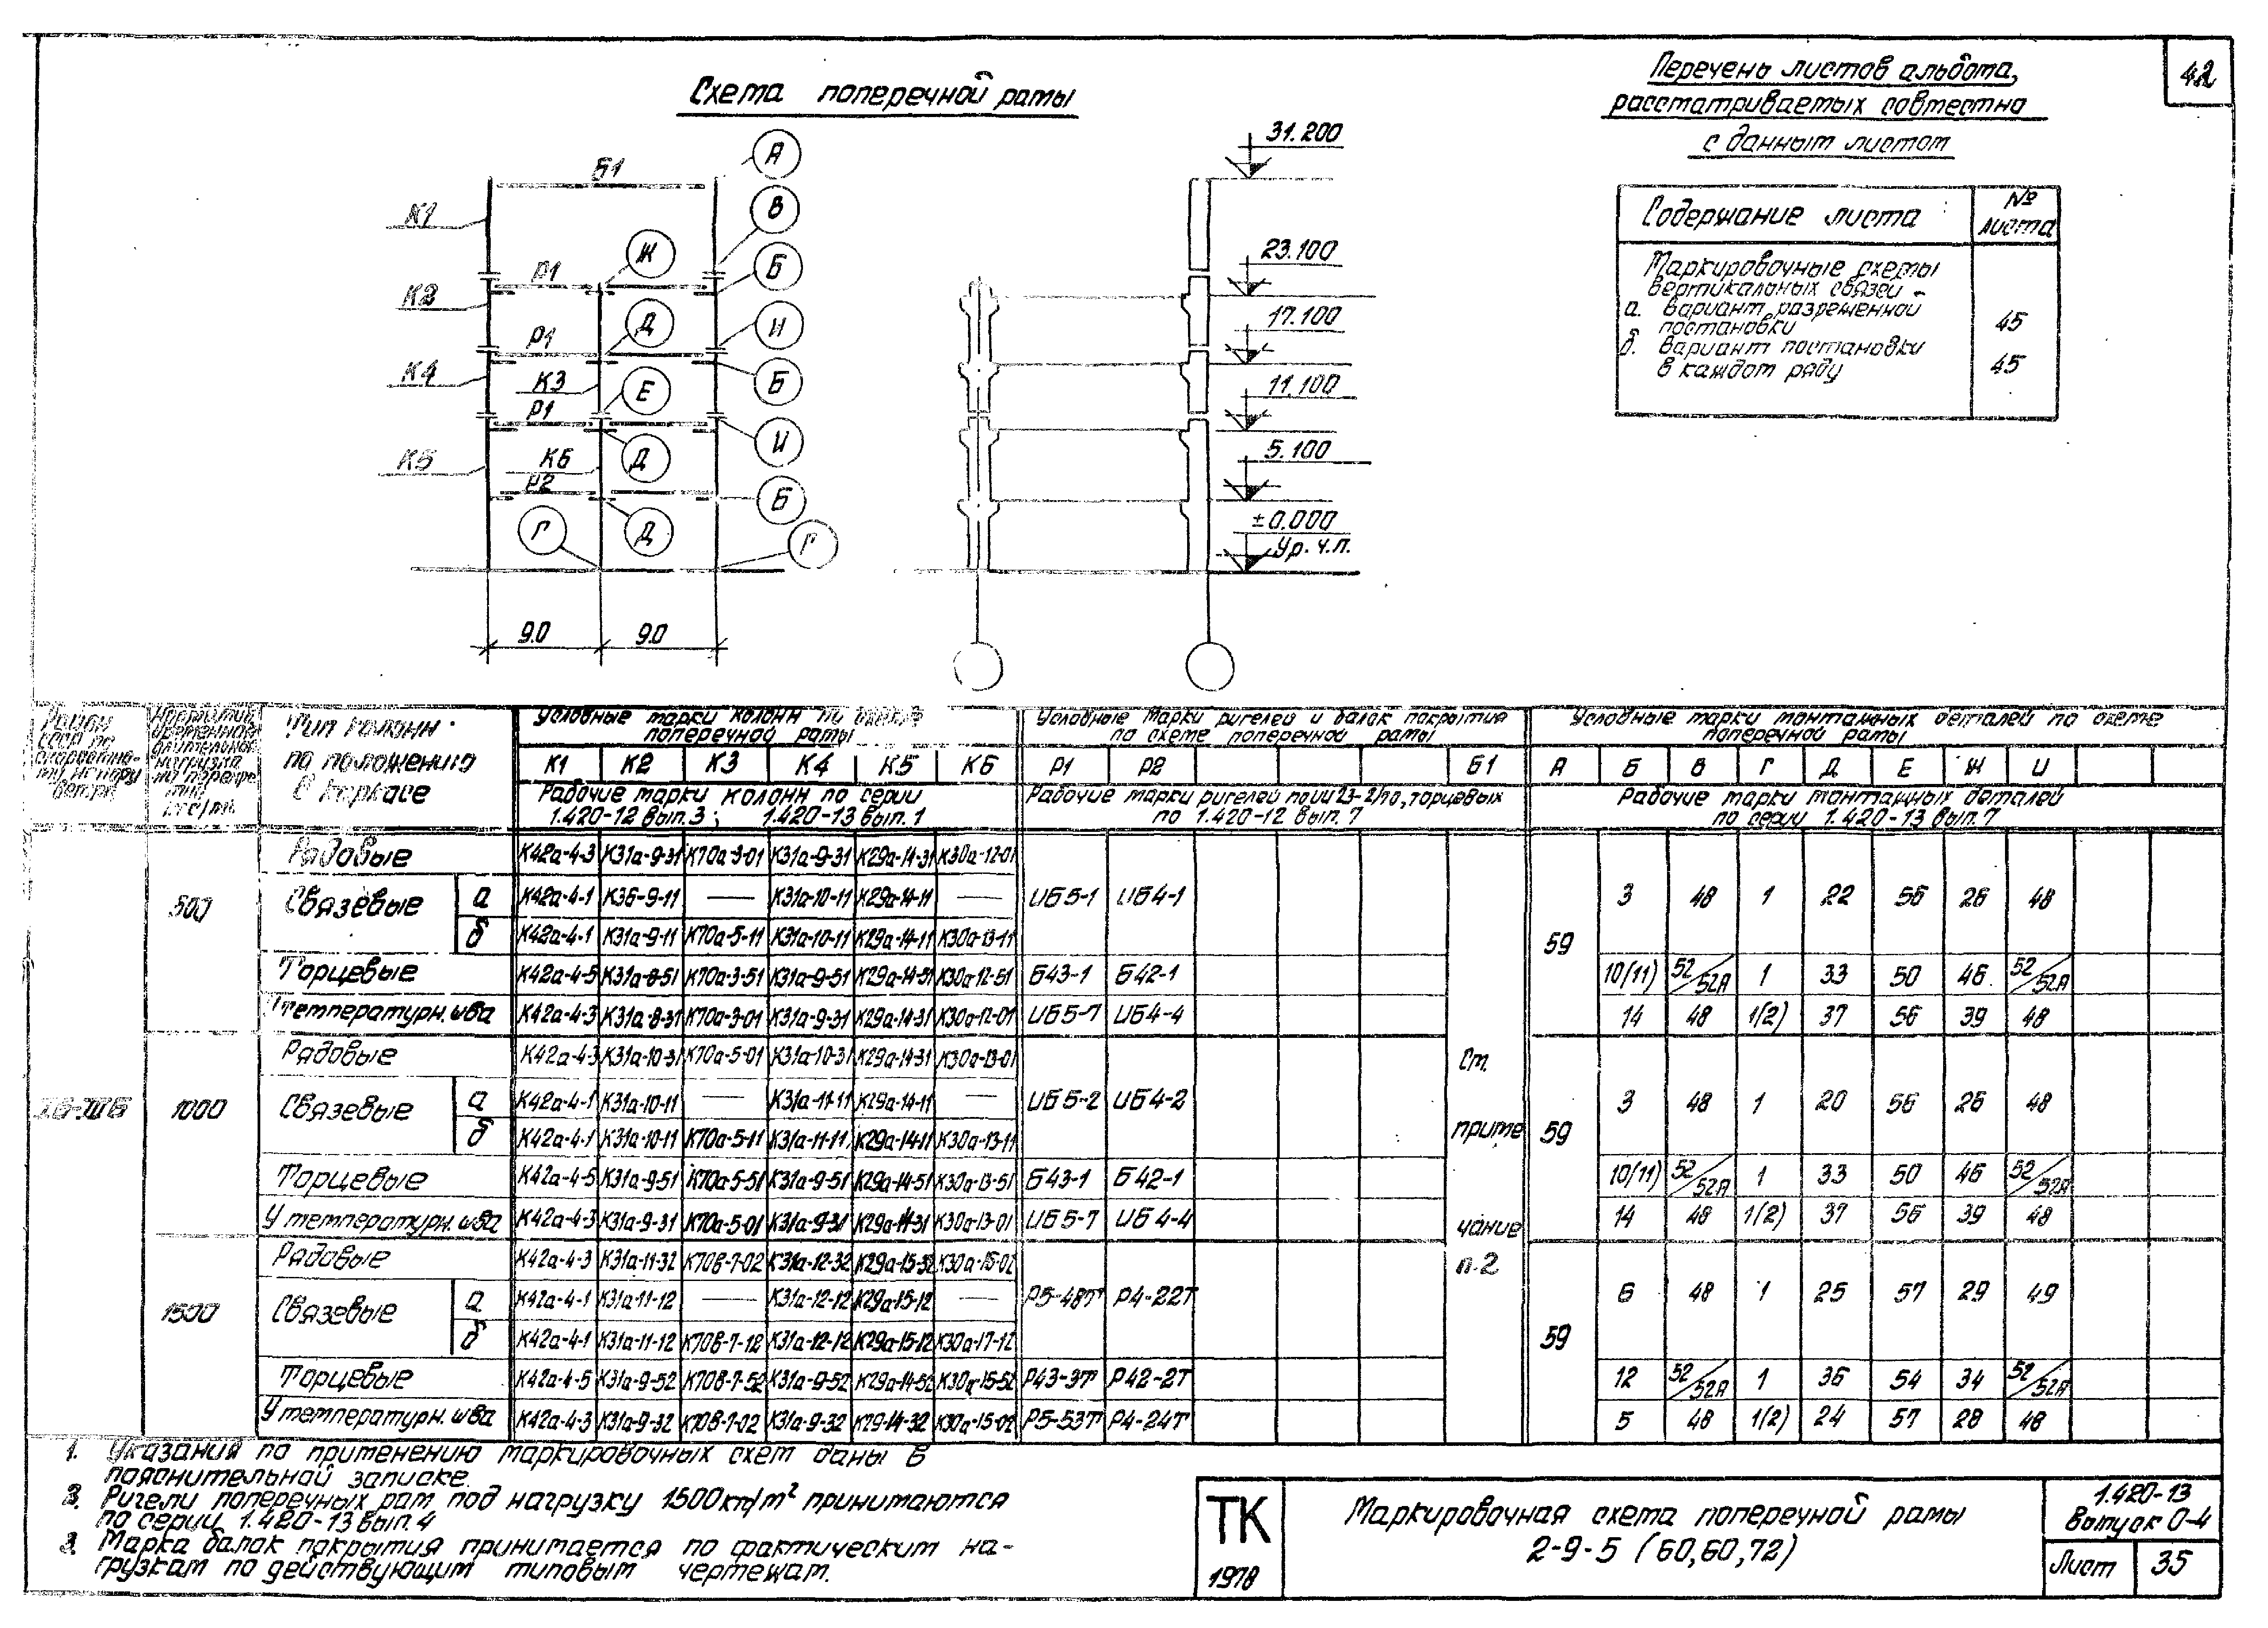 42
Схема поперечной рамы
Перечень листов альбома,
рассматриваемых совместно
с данным листом
Содержание листа
№ листа
Маркировочные схемы
вертикальных связей -
а. вариант разреженной
постановки
45
б. вариант постановки
в каждом ряду
45
Б1
А
В
Ж
Б
И
Д
Б
Е
И
Д
Б
Г
Д
Г
К1
К2
К4
К3
К5
К6
Р1
Р1
Р1
Р2
9.0
9.0
31.200
23.100
17.100
11.100
5.100
±0.000
Ур. ч.п.
Тип колонн
по положению
в каркасе
Условные марки колонн по схеме
поперечной рамы
Условные марки ригелей и балок покрытия
по схеме поперечной рамы
Условные марки монтажных деталей по схеме
поперечной рамы
К1 К2 К3 К4 К5 К6 Р1 Р2 Б1 А Б В Г Д Е Ж И
Рабочие марки колонн по серии
1.420-12 вып.3; 1.420-13 вып.1
Рабочие марки ригелей по ИИ23-2/70, торцевых
по 1.420-12 вып.7
Рабочие марки монтажных деталей
по серии 1.420-13 вып.7
500
Рядовые К42а-4-3 К31а-9-31 К70а-3-01 К31а-9-31 К29а-14-31 К30а-12-01
Связевые а К42а-4-1 К36-9-11 — К31а-10-11 К29а-14-11 — ИБ5-1 ИБ4-1 3 48 1 22 56 26 48
б К42а-4-1 К31а-9-11 К70а-5-11 К31а-10-11 К29а-14-11 К30а-13-11
59
Торцевые К42а-4-5 К31а-8-51 К70а-3-51 К31а-9-51 К29а-14-51 К30а-12-51 Б43-1 Б42-1 10(11) 52/52А 1 33 50 46 52/52А
У температурн. шва К42а-4-3 К31а-8-31 К70а-3-01 К31а-9-31 К29а-14-31 К30а-12-01 ИБ5-7 ИБ4-4 14 48 1(2) 37 56 39 48
1000
Рядовые К42а-4-3 К31а-10-31 К70а-5-01 К31а-10-31 К29а-14-31 К30а-13-01
Связевые а К42а-4-1 К31а-10-11 — К31а-11-11 К29а-14-11 — ИБ5-2 ИБ4-2 3 48 1 20 56 26 48
б К42а-4-1 К31а-10-11 К70а-5-11 К31а-11-11 К29а-14-11 К30а-13-11
59
Торцевые К42а-4-5 К31а-9-51 К70а-5-51 К31а-9-51 К29а-14-51 К30а-13-51 Б43-1 Б42-1 10(11) 52/52А 1 33 50 46 52/52А
У температурн. шва К42а-4-3 К31а-9-31 К70а-5-01 К31а-9-31 К29а-14-31 К30а-13-01 ИБ5-7 ИБ4-4 14 48 1(2) 37 56 39 48
См.
приме
чание
п.2
1500
Рядовые К42а-4-3 К31а-11-32 К70в-7-02 К31а-12-32 К29а-15-32 К30а-15-02
Связевые а К42а-4-1 К31а-11-12 — К31а-12-12 К29а-15-12 — Р5-48Т Р4-22Т 6 48 1 25 57 29 49
б К42а-4-1 К31а-11-12 К70в-7-12 К31а-12-12 К29а-15-12 К30а-17-12
59
Торцевые К42а-4-5 К31а-9-52 К70в-7-52 К31а-9-52 К29а-14-52 К30а-15-52 Р43-3Т Р42-2Т 12 52/52А 1 36 54 34 52/52А
У температурн. шва К42а-4-3 К31а-9-32 К70в-7-02 К31а-9-32 К29-14-32 К30а-15-02 Р5-53Т Р4-24Т 5 48 1(2) 24 57 28 48
1. Указания по применению маркировочных схем даны в
пояснительной записке.
Ригели поперечных рам под нагрузку 1500кг/м² принимаются
по серии 1.420-13 вып.4
Марка балок покрытия принимается по фактическим на-
грузкам по действующим типовым чертежам.
ТК
1978
Маркировочная схема поперечной рамы
2-9-5 (60,60,72)
1.420-13
Выпуск 0-4
Лист 35